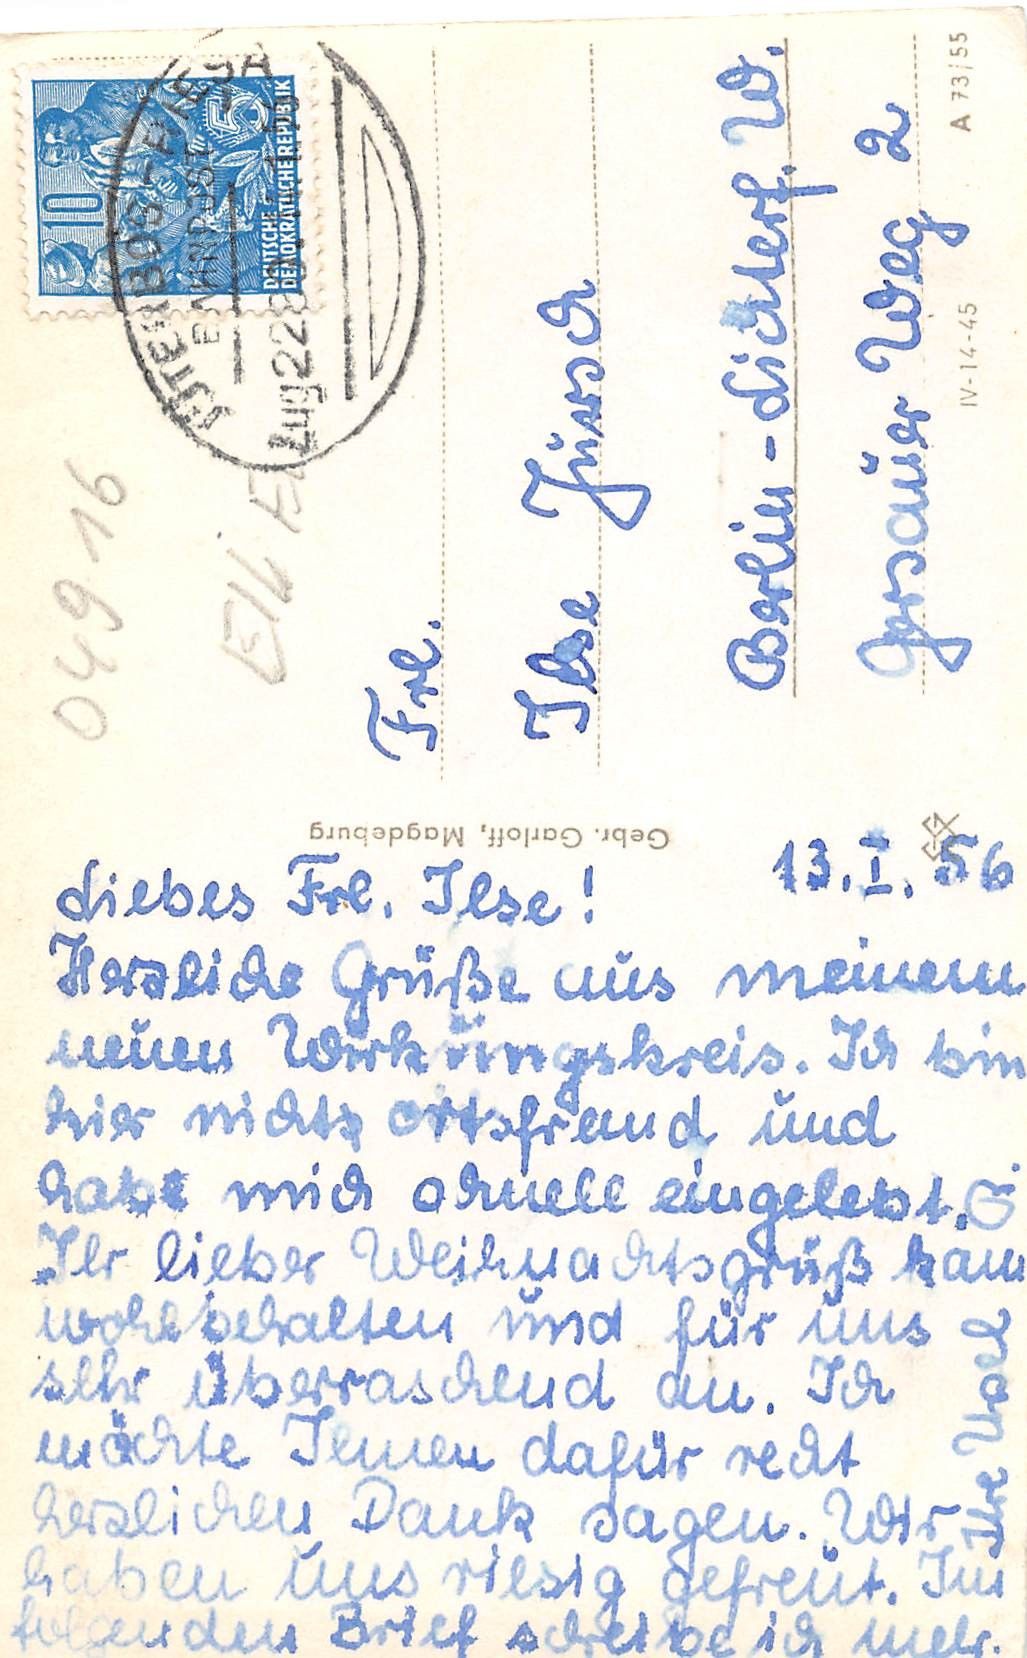 10
DEUTSCHE
DEMOKRATISCHE REPUBLIK
BAHNPOST
Zug 228
04916
Frl.
Ilse Jüırsch
Berlin-Lichterf. W.
Gersauer Weg 2
A 73/55
IV-14-45
Gebr. Garloff, Magdeburg
13. I. 56
Liebes Frl. Ilse!
Herzliche Grüße aus meinem
neuen Wirkungskreis. Ich bin
hier nicht ortsfremd und
habe mich schnell eingelebt.
Ihr lieber Weihnachtsgruß kam
wohlbehalten und für uns
sehr überraschend an. Ich
möchte Ihnen dafür recht
herzlichen Dank sagen. Wir
haben uns riesig gefreut. Im
folgenden Brief schreibe ich mehr.
Ihre